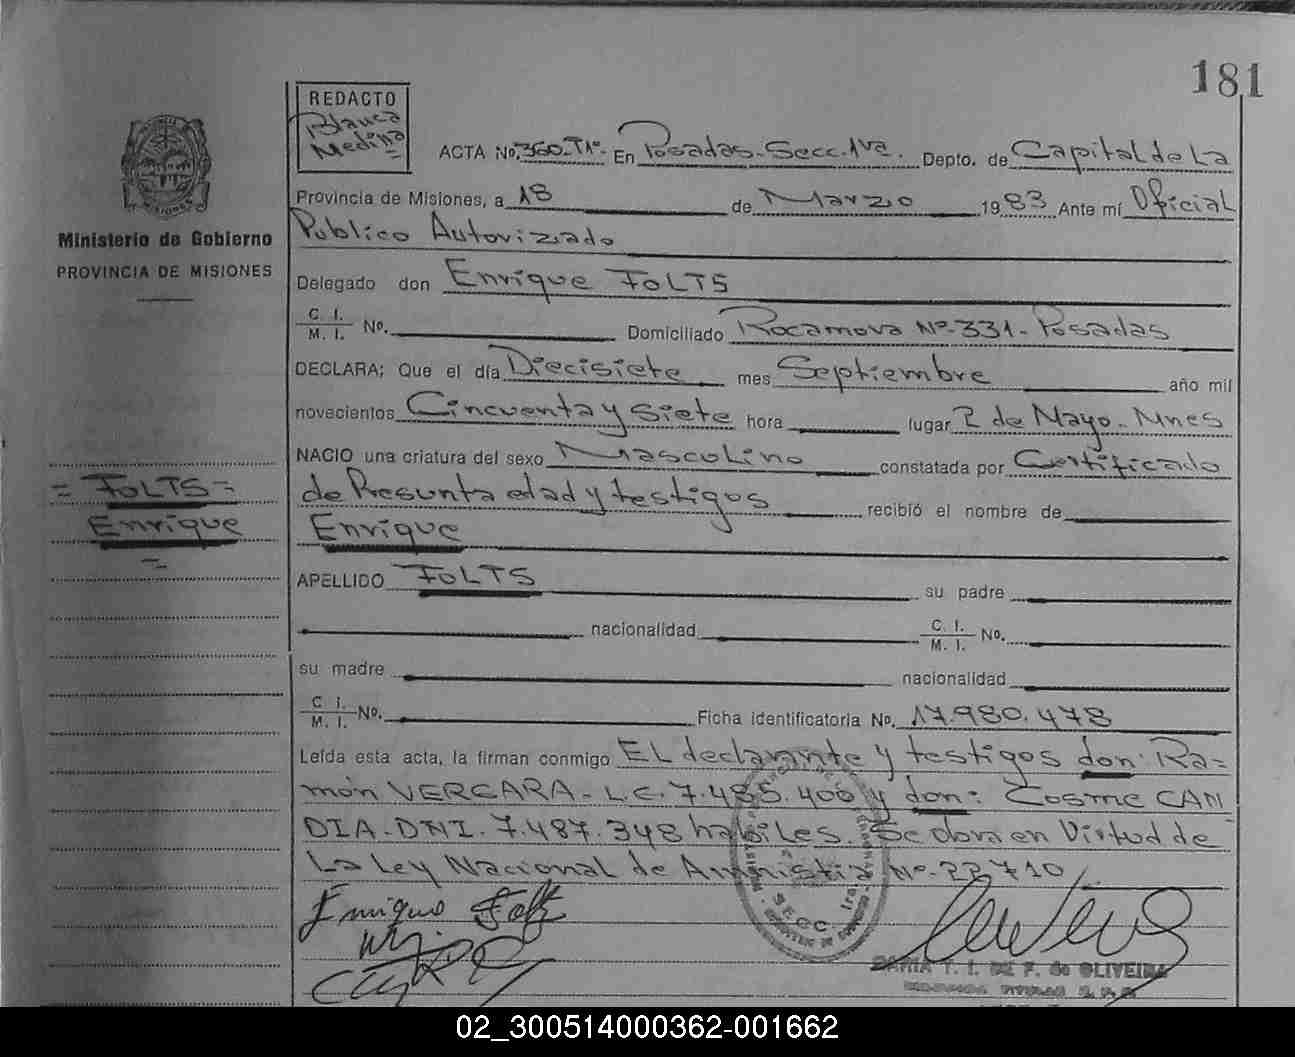 181
REDACTO
Blanca
Medina
ACTA No. 360-T1º- En Posadas-Secc.1ra. Depto. de Capital de La
Provincia de Misiones, a 18 de Marzo 1983 Ante mí Oficial
Publico Autorizado
Delegado don Enrique FOLTS
C. I.
M. I. No. Domiciliado Rocamora Nº-331- Posadas
DECLARA; Que el día Diecisiete mes Septiembre año mil
novecientos Cincuenta y Siete hora lugar 2 de Mayo-Mnes
NACIO una criatura del sexo Masculino constatada por Certificado
de Presunta edad y testigos recibió el nombre de
Enrique
APELLIDO FOLTS su padre
nacionalidad C. I.
M. I. No.
su madre nacionalidad
C. I.
M. I. No. Ficha identificatoria No. 17.980.478
Leída esta acta, la firman conmigo EL declarante y testigos don: Ra=
món VERGARA- L.C. 7.485.400 y don: Cosme CAN
DIA-DNI. 7.487.348 habiles. Se obra en Virtud de
La Ley Nacional de Amnistia Nº-22710
Enrique Folts
SECC. 1ra.
MARIA T. I. DE F. de OLIVEIRA
Ministerio de Gobierno
PROVINCIA DE MISIONES
= FOLTS =
Enrique
02_300514000362-001662